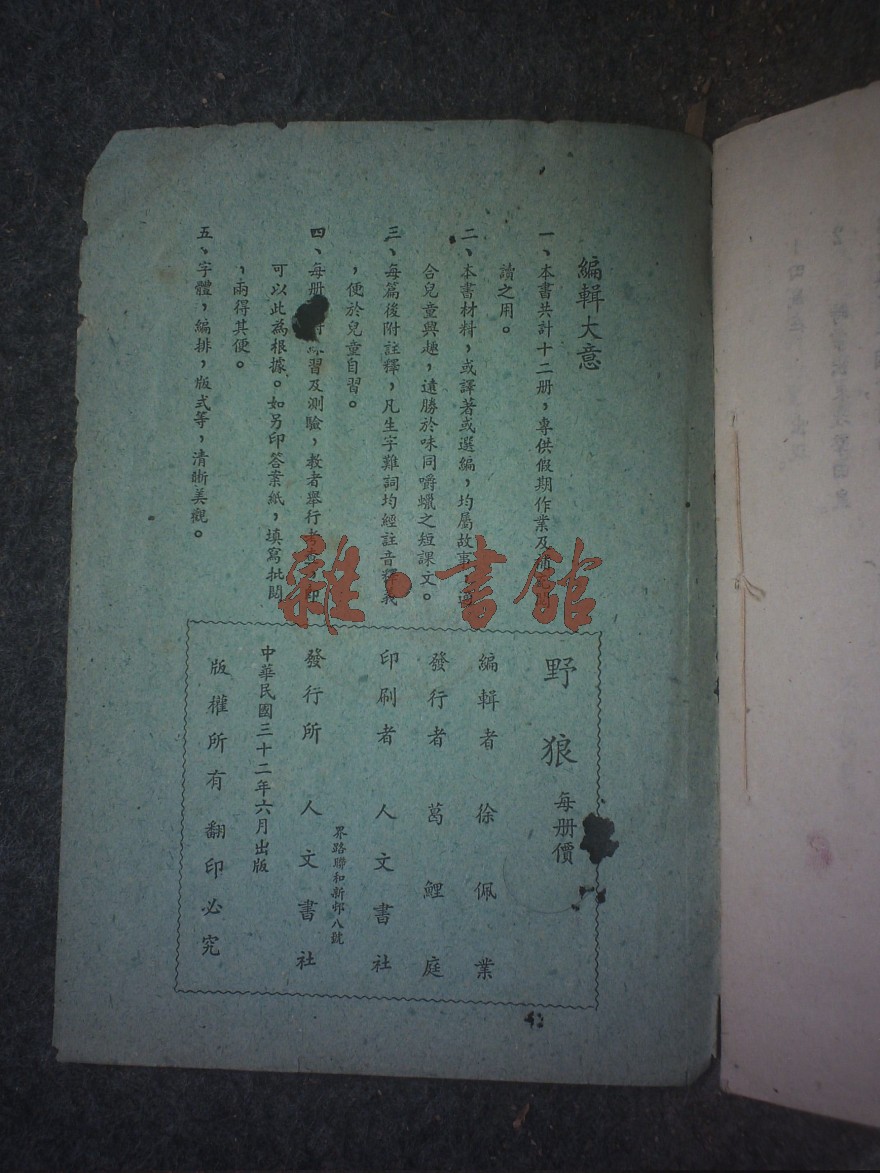 編輯大意
一、本書共計十二册，專供假期作業及
讀之用。
二、本書材料，或譯著或選編，均屬故事，適
合兒童興趣，遠勝於味同嚼蠟之短課文。
三、每篇後附註釋，凡生字難詞均經註音釋義
，便於兒童自習。
四、每册 練習及測驗，教者舉行
可以此為根據。如另印答案紙，填寫批閱
，兩得其便。
五、字體，編排，版式等，清晰美觀。
雜·書館
野狼 每册價
編輯者 徐佩業
發行者 葛鯉庭
印刷者 人文書社
界路聯和新邨八號
發行所 人文書社
中華民國三十二年六月出版
版權所有翻印必究